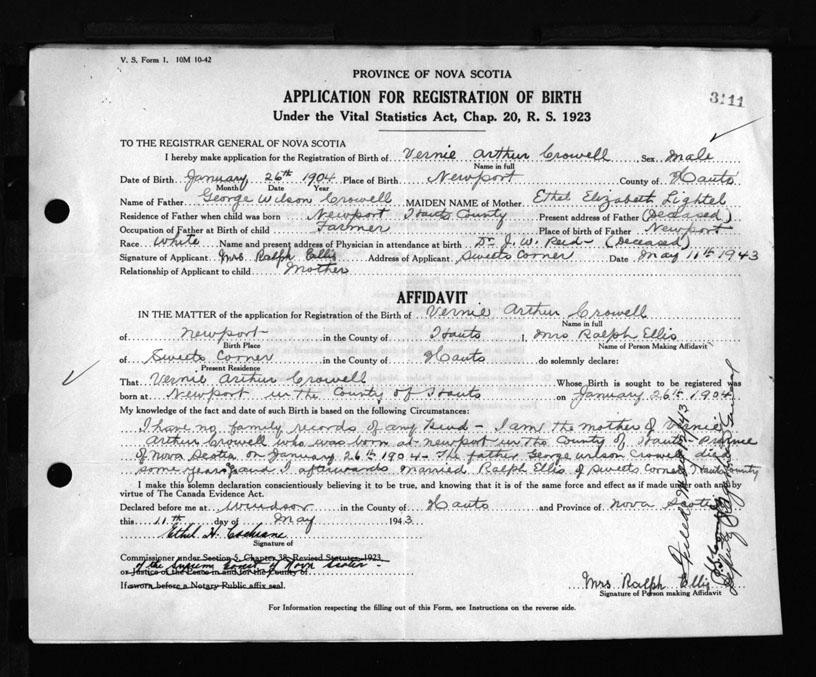 V. S. Form 1. 10M 10-42
PROVINCE OF NOVA SCOTIA
APPLICATION FOR REGISTRATION OF BIRTH
3211
Under the Vital Statistics Act, Chap. 20, R. S. 1923
TO THE REGISTRAR GENERAL OF NOVA SCOTIA
I hereby make application for the Registration of Birth of Vernie Arthur Crowell Sex Male
Name in full
Date of Birth January 26th 1904 Place of Birth Newport County of Hants
Month Date Year
Name of Father George Wilson Crowell MAIDEN NAME of Mother Ethel Elizabeth Lightel
Residence of Father when child was born Newport Hants County Present address of Father (Deceased)
Occupation of Father at Birth of child Farmer Place of Birth of Father Newport
Race White Name and present address of Physician in attendance at birth Dr. J. W. Reid - (Deceased)
Signature of Applicant Mrs Ralph Ellis Address of Applicant Sweets Corner Date May 11th 1943
Relationship of Applicant to child Mother
AFFIDAVIT
IN THE MATTER of the application for Registration of the Birth of Vernie Arthur Crowell
Name in full
of Newport in the County of Hants I, Mrs Ralph Ellis
Birth Place Name of Person Making Affidavit
of Sweets Corner in the County of Hants do solemnly declare:
Present Residence
That Vernie Arthur Crowell Whose Birth is sought to be registered was
born at Newport in the County of Hants on January 26th 1904
My knowledge of the fact and date of such Birth is based on the following Circumstances:
I have no family records of any kind - I am the mother of Vernie
Arthur Crowell who was born at Newport in the County of Hants Province
of Nova Scotia on January 26th 1904 - The father George Wilson Crowell died
some years and I afterwards married Ralph Ellis of Sweets Corner, Hants County
I make this solemn declaration conscientiously believing it to be true, and knowing that it is of the same force and effect as if made under oath and by
virtue of The Canada Evidence Act.
Declared before me at Windsor in the County of Hants and Province of Nova Scotia
this 11th day of May 1943
Ethel H. Cochrane
Signature of
Commissioner under Section 5, Chapter 38, Revised Statutes, 1923
of the Supreme Court of Nova Scotia -
or Justice of the Peace in and for the County of
If sworn before a Notary Public affix seal.
Mrs Ralph Ellis
Signature of Person making Affidavit
For Information respecting the filling out of this Form, see Instructions on the reverse side.
Filed May 1943
Deputy Registrar General